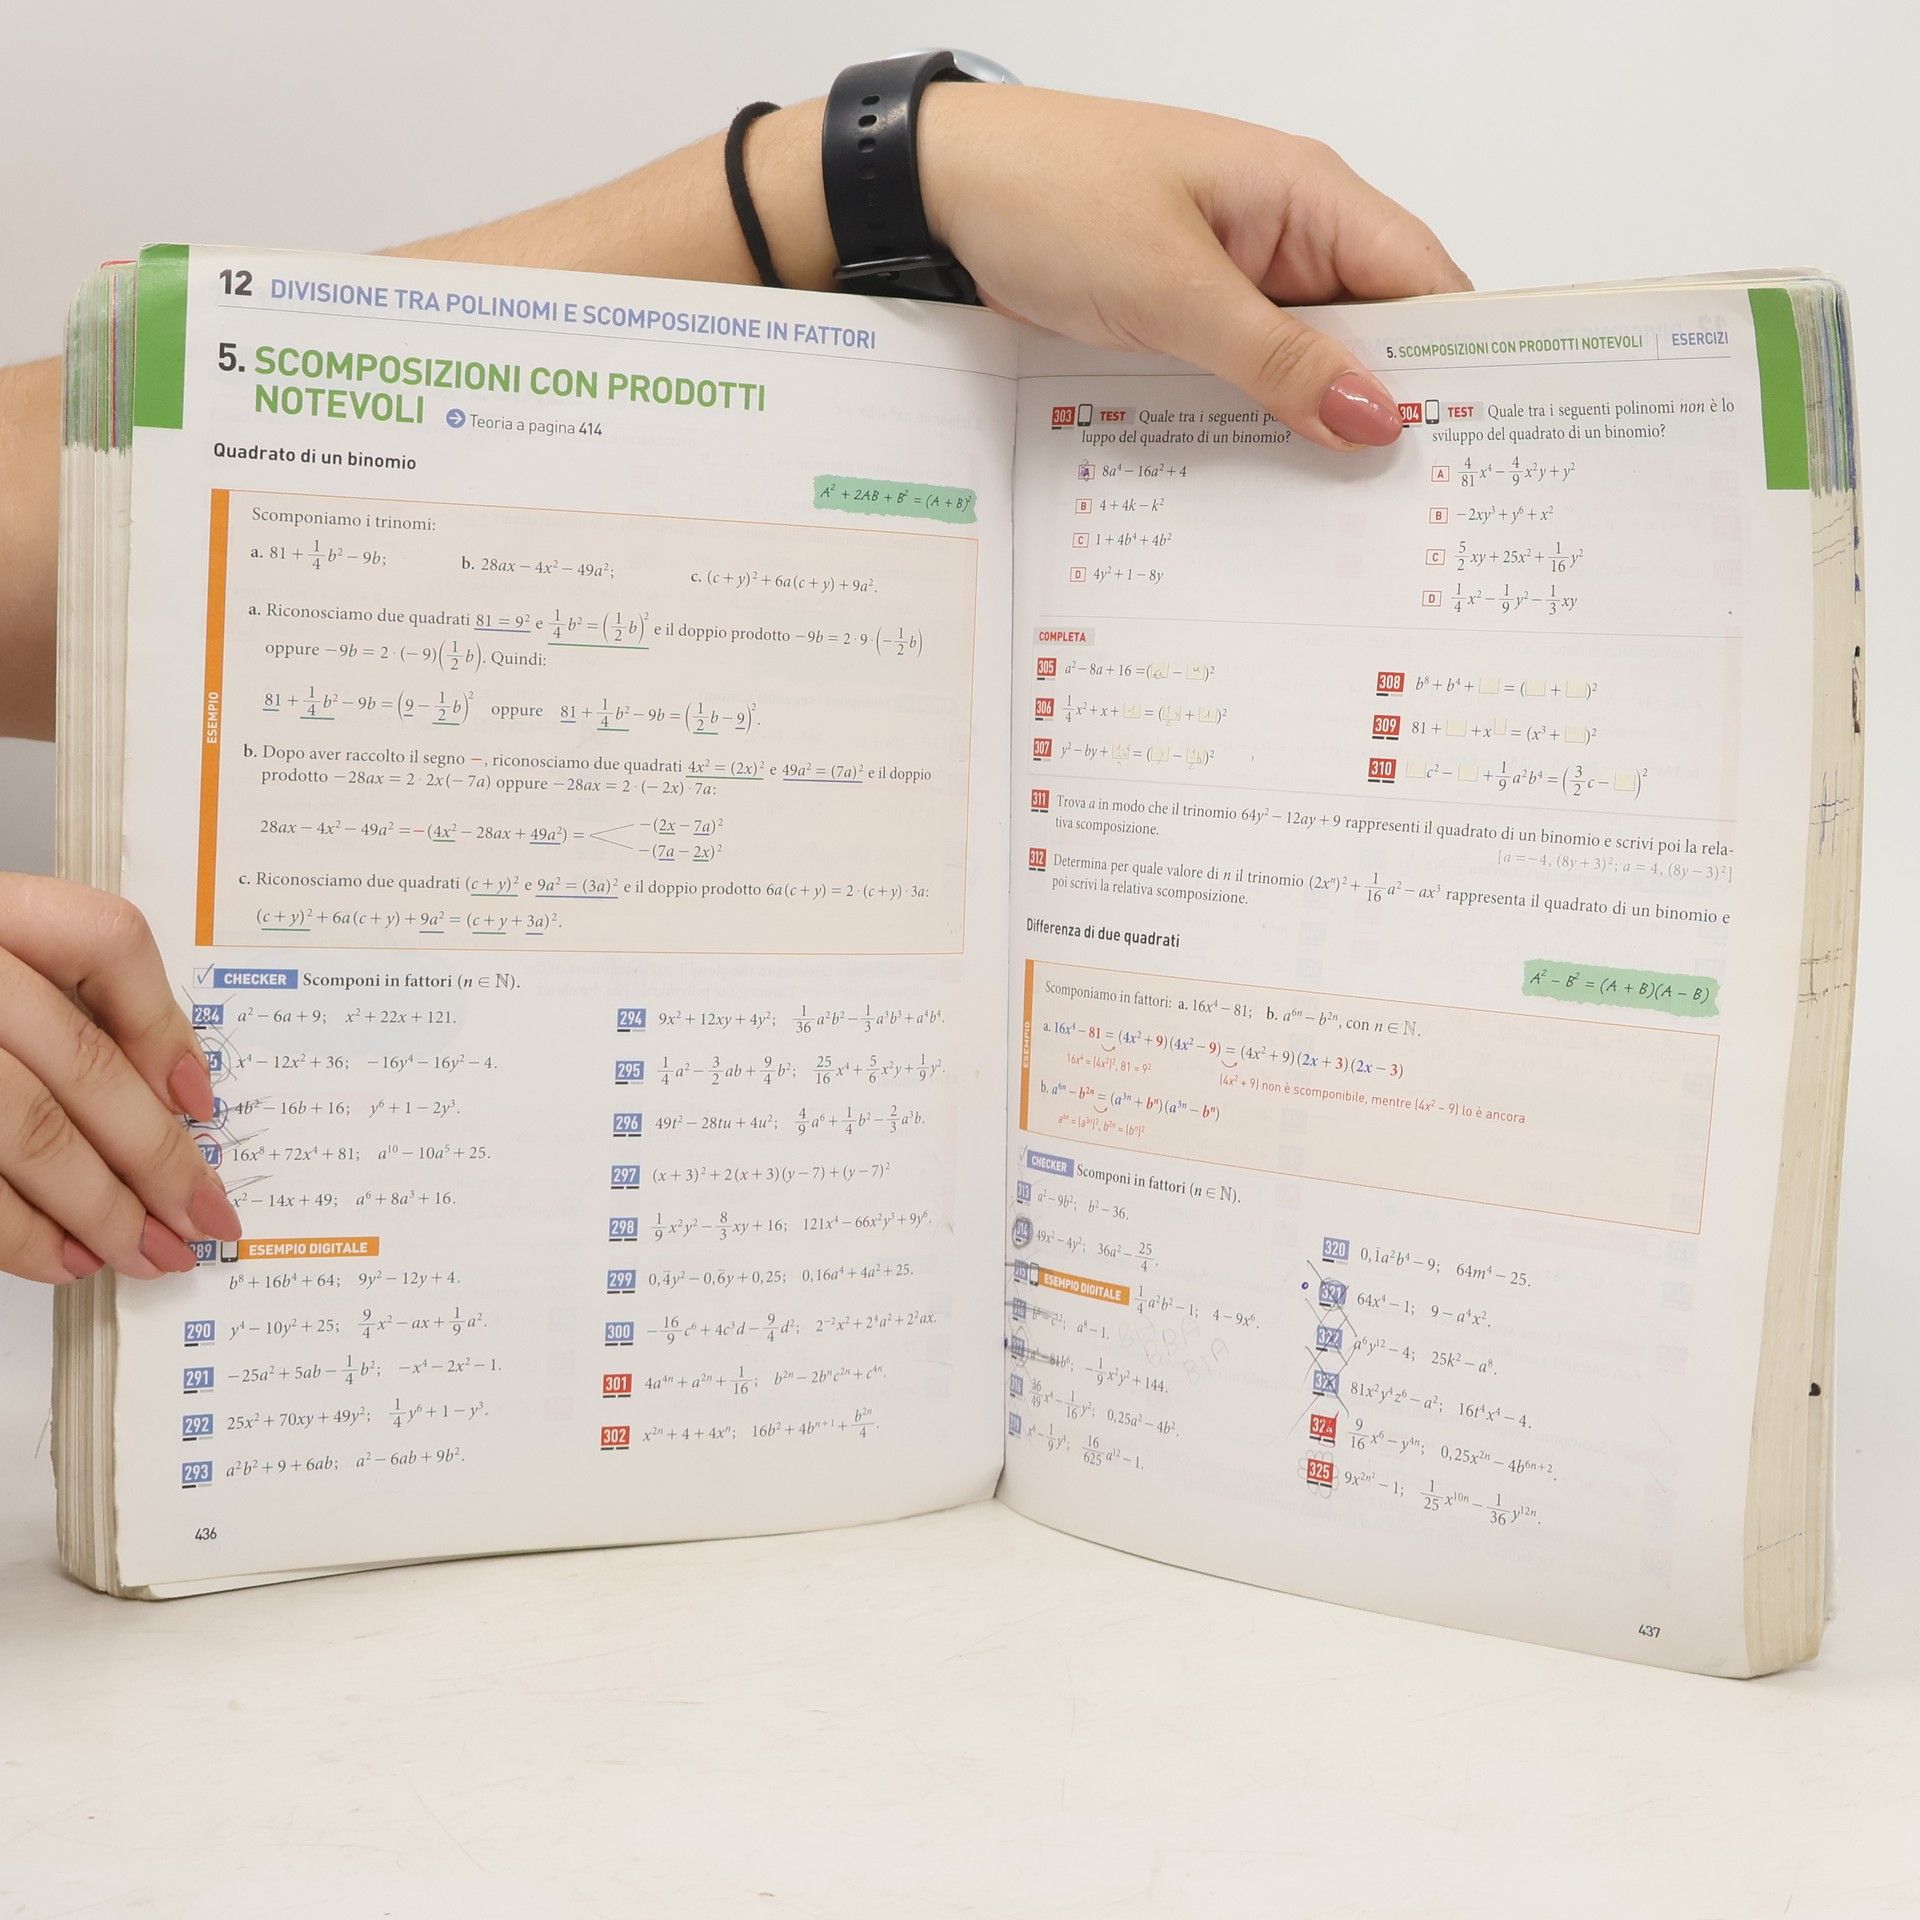 12 DIVISIONE TRA POLINOMI E SCOMPOSIZIONE IN FATTORI
5. SCOMPOSIZIONI CON PRODOTTI
NOTEVOLI Teoria a pagina 414
Quadrato di un binomio
A² + 2AB + B² = (A + B)²
ESEMPIO
Scomponiamo i trinomi:
a. 81 + 1/4 b² − 9b; b. 28ax − 4x² − 49a²; c. (c + y)² + 6a(c + y) + 9a².
a. Riconosciamo due quadrati 81 = 9² e 1/4 b² = (1/2 b)² e il doppio prodotto −9b = 2·9·(−1/2 b)
oppure −9b = 2·(−9)(1/2 b). Quindi:
81 + 1/4 b² − 9b = (9 − 1/2 b)² oppure 81 + 1/4 b² − 9b = (1/2 b − 9)².
b. Dopo aver raccolto il segno −, riconosciamo due quadrati 4x² = (2x)² e 49a² = (7a)² e il doppio
prodotto −28ax = 2·2x(−7a) oppure −28ax = 2·(−2x)·7a:
28ax − 4x² − 49a² = −(4x² − 28ax + 49a²) = −(2x − 7a)²
−(7a − 2x)²
c. Riconosciamo due quadrati (c + y)² e 9a² = (3a)² e il doppio prodotto 6a(c + y) = 2·(c + y)·3a:
(c + y)² + 6a(c + y) + 9a² = (c + y + 3a)².
CHECKER Scomponi in fattori (n ∈ ℕ).
284 a² − 6a + 9; x² + 22x + 121.
x⁴ − 12x² + 36; −16y⁴ − 16y² − 4.
4b² − 16b + 16; y⁶ + 1 − 2y³.
16x⁸ + 72x⁴ + 81; a¹⁰ − 10a⁵ + 25.
x² − 14x + 49; a⁶ + 8a³ + 16.
89 ESEMPIO DIGITALE
b⁸ + 16b⁴ + 64; 9y² − 12y + 4.
290 y⁴ − 10y² + 25; 9/4 x² − ax + 1/9 a².
291 −25a² + 5ab − 1/4 b²; −x⁴ − 2x² − 1.
292 25x² + 70xy + 49y²; 1/4 y⁶ + 1 − y³.
293 a²b² + 9 + 6ab; a² − 6ab + 9b².
294 9x² + 12xy + 4y²; 1/36 a²b² − 1/3 a³b³ + a⁴b⁴.
295 1/4 a² − 3/2 ab + 9/4 b²; 25/16 x⁴ + 5/6 x²y + 1/9 y².
296 49t² − 28tu + 4u²; 4/9 a⁶ + 1/4 b² − 2/3 a³b.
297 (x + 3)² + 2(x + 3)(y − 7) + (y − 7)²
298 1/9 x²y² − 8/3 xy + 16; 121x⁴ − 66x²y³ + 9y⁶.
299 0,4̅y² − 0,6̅y + 0,25; 0,16a⁴ + 4a² + 25.
300 −16/9 c⁶ + 4c³d − 9/4 d²; 2⁻²x² + 2⁴a² + 2²ax.
301 4a⁴ⁿ + a²ⁿ + 1/16; b²ⁿ − 2bⁿc²ⁿ + c⁴ⁿ.
302 x²ⁿ + 4 + 4xⁿ; 16b² + 4bⁿ⁺¹ + b²ⁿ/4.
436
5. SCOMPOSIZIONI CON PRODOTTI NOTEVOLI ESERCIZI
303 TEST Quale tra i seguenti
luppo del quadrato di un binomio?
A 8a⁴ − 16a² + 4
B 4 + 4k − k²
C 1 + 4b⁴ + 4b²
D 4y² + 1 − 8y
304 TEST Quale tra i seguenti polinomi non è lo
sviluppo del quadrato di un binomio?
A 4/81 x⁴ − 4/9 x²y + y²
B −2xy³ + y⁶ + x²
C 5/2 xy + 25x² + 1/16 y²
D 1/4 x² − 1/9 y² − 1/3 xy
COMPLETA
305 a² − 8a + 16 = ( − )²
306 1/4 x² + x + = ( + )²
307 y² − by + = ( − )²
308 b⁸ + b⁴ + = ( + )²
309 81 + + x = (x³ + )²
310 c² − + 1/9 a²b⁴ = (3/2 c − )²
311 Trova a in modo che il trinomio 64y² − 12ay + 9 rappresenti il quadrato di un binomio e scrivi poi la rela-
tiva scomposizione.
[a = −4, (8y + 3)²; a = 4, (8y − 3)²]
312 Determina per quale valore di n il trinomio (2xⁿ)² + 1/16 a² − ax³ rappresenta il quadrato di un binomio e
poi scrivi la relativa scomposizione.
Differenza di due quadrati
A² − B² = (A + B)(A − B)
ESEMPIO
Scomponiamo in fattori: a. 16x⁴ − 81; b. a⁶ⁿ − b²ⁿ, con n ∈ ℕ.
a. 16x⁴ − 81 = (4x² + 9)(4x² − 9) = (4x² + 9)(2x + 3)(2x − 3)
16x⁴ = (4x²)², 81 = 9²
(4x² + 9) non è scomponibile, mentre (4x² − 9) lo è ancora
b. a⁶ⁿ − b²ⁿ = (a³ⁿ + bⁿ)(a³ⁿ − bⁿ)
a⁶ⁿ = (a³ⁿ)², b²ⁿ = (bⁿ)²
CHECKER Scomponi in fattori (n ∈ ℕ).
313 a² − 9b²; b² − 36.
314 49x² − 4y²; 36a² − 25/4.
ESEMPIO DIGITALE 1/4 a²b² − 1; 4 − 9x⁶.
a⁸ − 1.
81b⁶; −1/9 x²y² + 144.
36/49 x⁴ − 1/16 y²; 0,25a² − 4b².
16/625 a¹² − 1.
320 0,1̅a²b⁴ − 9; 64m⁴ − 25.
321 64x⁴ − 1; 9 − a⁴x².
322 a⁶y¹² − 4; 25k² − a⁸.
323 81x²y⁴z⁶ − a²; 16t⁴x⁴ − 4.
324 9/16 x⁶ − y⁴ⁿ; 0,25x²ⁿ − 4b⁶ⁿ⁺².
325 9x²ⁿ² − 1; 1/25 x¹⁰ⁿ − 1/36 y¹²ⁿ.
437